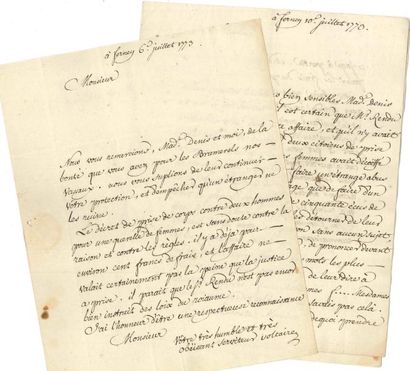 à ferney 6e juillet 1773
Monsieur
Nous vous remercions, Mad. Denis et moi, de la
bonté que vous avez pour les Bramerels nos
voyaux, nous vous suplions de leur continuer
votre protection, et d'empêcher qu'un étranger ne
les ruine.
Le décret de prise de corps contre deux hommes
pour une querelle de femmes, est sans doute contre la
raison et contre les règles. il y a déja pour
environ cent francs de fraix, et l'affaire ne
valait certainement pas la peine que la justice
a prise. il parait que le Sr. Rendu n'est pas encor
bien instruit des loix du roiaume.
J'ai l'honneur d'être une respectueuse reconnaissance
Monsieur
Votre très humble et très
obéissant serviteur voltaire
à ferney 10e juillet 1773.
bien sensibles Mad. Denis
est certain que Mr. Rendu
affaire, et qu'il n'y avait
deux citoiens de prise
femmes avait décoiffé
faire un étrange abus
que de faire d'un
cinquante écus de
détourner de leur
sans aucun sujet.
de prononcer devant
mots les plus
de leur dire à
f... Mesdames
pas celà.
de quoi prendre